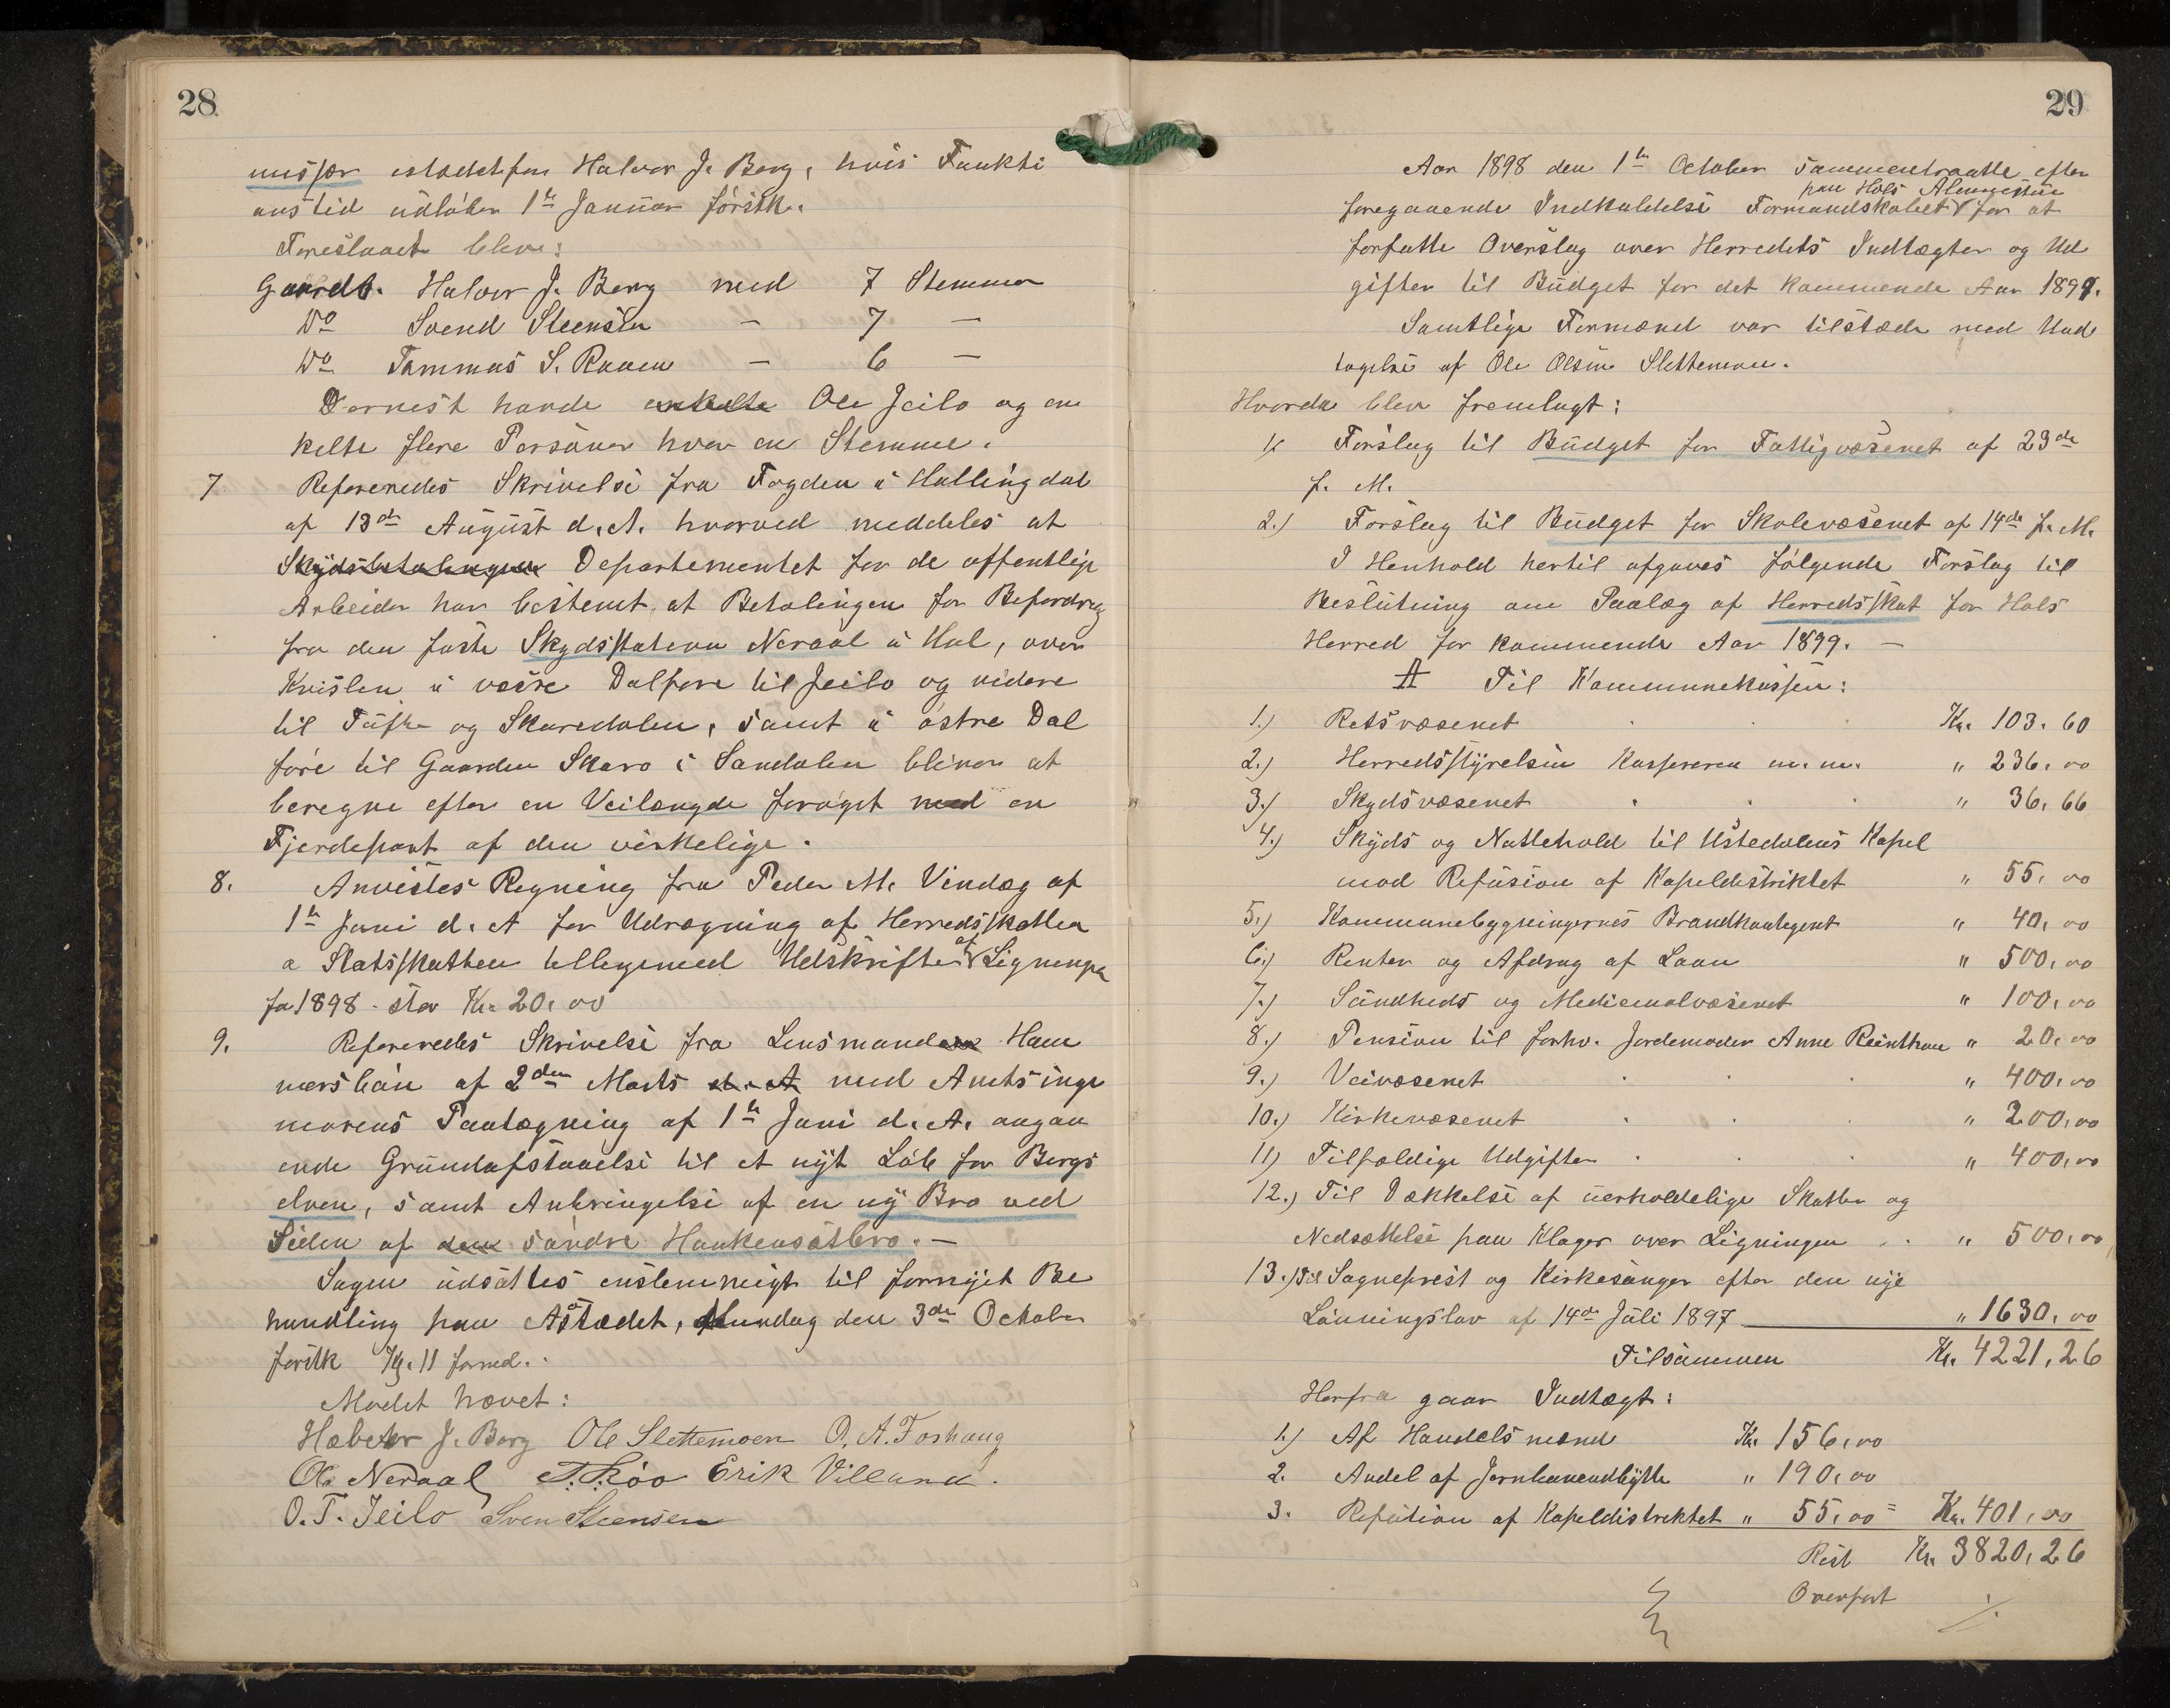 28
missær istedetfor Halvor J. Berg, hvis Funkti
onstid udløber 1ste Januar förstk.
Foreslaaet blev:
Gaardb. Halvor J. Berg med 7 Stemmer
Do Svend Steensen — 7 —
Do Tommas S. Raaen — 6 —
Dernest havde enkelte Ole Jeilo og en
kelte flere Personer hver en Stemme.
7 Refereredes Skrivelse fra Fogden i Hallingdal
af 13de August d. A. hvorved meddeles at
Skydsbetalingen Departementet for de offentlige
Arbeider har bestemt at Betalingen for Befordring
fra den faste Skydsstation Neraal i Hol, over
Kvislen i vestre Dalføre til Jeilo og videre
til Tufte og Skuredalen, samt i østre Dal
føre til Gaarden Skaro i Sandalen bliver at
beregne efter en Veilængde forøget med en
Fjerdepart af den virkelige.
8. Anvistes Regning fra Peder M. Vindæg af
1ste Juni d. A for Udregning af Herredsskatten
a Statsskatten tilligemed Udskrifter af Ligningen
for 1898 - stor Kr. 20,00
9. Refereredes Skrivelse fra Lensmanden Ham
mersbøn af 2den Marts d. A med Amtsinge
niørens Paategning af 1ste Juni d. A. angaa
ende Grundafstaaelse til et nyt Løb for Bergs
elven, samt Anbringelse af en ny Bro ved
Siden af den søndre Haukensætbro. —
Sagen udsattes enstemmigt til fornyet Be
handling paa Aastædet, Mandag den 3de October
förstk Kl. 11 formd.
Mødet hævet:
Halvor J. Berg Ole Slettemoen O. A. Foshaug
Ole Neraal T. Roo Erik Villand.
O. T. Jeilo Sven Steensen
29
Aar 1898 den 1ste October sammentraatte efter
paa Hols Almenstue
foregaaende Indkaldelse Formandskabet for at
forfatte Overslag over Herredets Indtægter og Ud
gifter til Budget for det kommende Aar 1899.
Samtlige Formænd var tilstæde med Und
tagelse af Ole Olsen Slettemoen.
Hvorda blev fremlagt:
1. Forslag til Budget for Fattigvæsenet af 23de
f. M.
2.) Forslag til Budget for Skolevæsenet af 14de f. M.
I Henhold hertil afgaves følgende Forslag til
Beslutning om Paalæg af Herredsskat for Hols
Herred for kommende Aar 1899. —
A Til Kommunekassen:
1.) Retsvæsenet Kr. 103.60
2.) Herredsstyrelsen Kassereren m.m. " 236,00
3.) Skydsvæsenet " 36,66
4.) Skyds og Nattehold til Ustedalens Kapel
mod Refusion af Kapeldistriktet " 55,00
5.) Kommunebygningernes Brandkontigent " 40,00
6.) Renter og Afdrag af Laan " 500,00
7.) Sundheds og Medicinalvæsenet " 100,00
8.) Pension til forhv. Jordemoder Anne Reinthon " 20,00
9.) Veivæsenet " 400,00
10.) Kirkevæsenet " 200,00
11) Tilfældige Udgifter " 400,00
12.) Til Dækkelse af uerholdelige Skatter og
Nedsættelse paa Klager over Ligningen " 500,00
13.) Til Sogneprest og Kirkesanger efter den nye
Lønningslov af 14de Juli 1897 " 1630,00
Tilsammen Kr. 4221,26
Herfra gaar Indtægt:
1.) Af Handelsmænd Kr. 156,00
2. Andel af Jernbaneudbytte " 190,00
3. Refution af Kapeldistriktet " 55,00 = Kr. 401,00
Rest Kr. 3820,26
Overført ./.